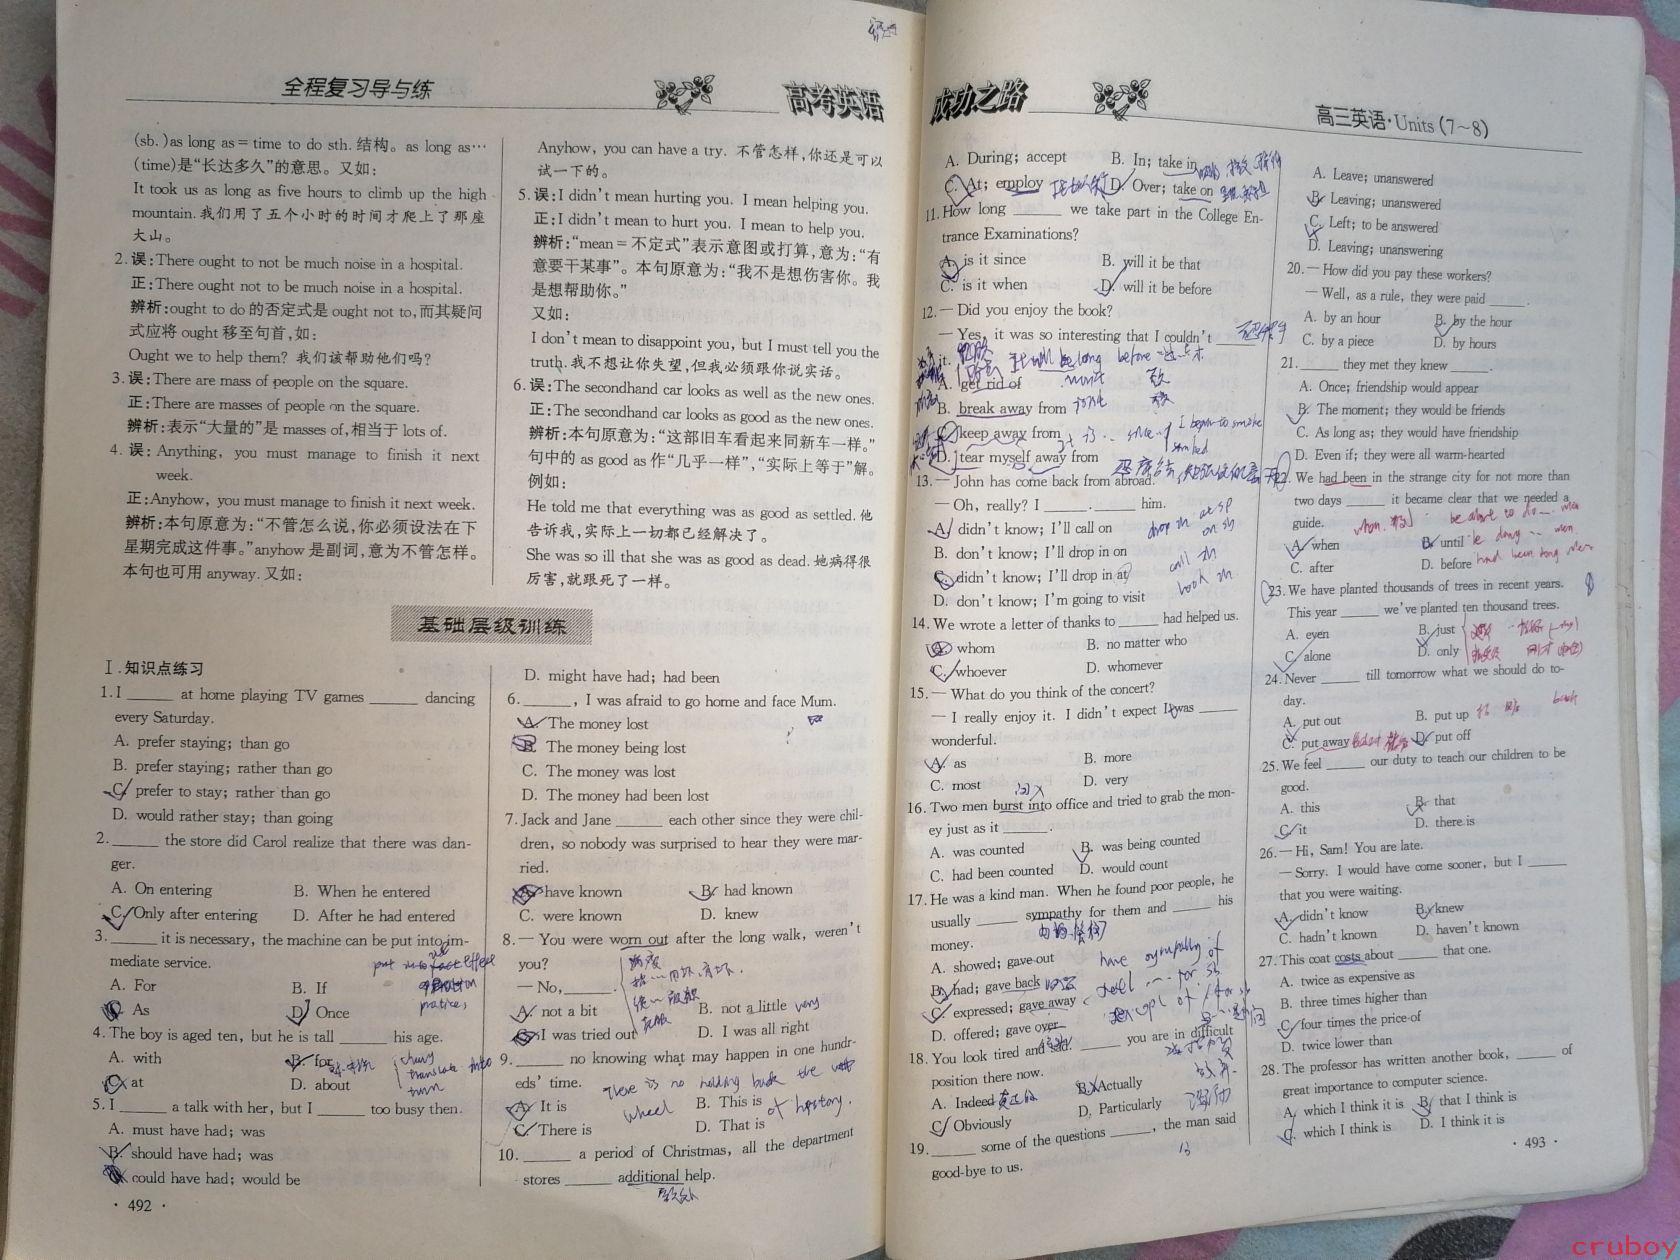 全程复习导与练
高考英语
(sb.)as long as=time to do sth. 结构。as long as…
(time)是“长达多久”的意思。又如:
It took us as long as five hours to climb up the high
mountain.我们用了五个小时的时间才爬上了那座
大山。
2.误:There ought to not be much noise in a hospital.
正:There ought not to be much noise in a hospital.
辨析:ought to do 的否定式是 ought not to,而其疑问
式应将 ought 移至句首,如:
Ought we to help them? 我们该帮助他们吗?
3.误:There are mass of people on the square.
正:There are masses of people on the square.
辨析:表示“大量的”是 masses of,相当于 lots of.
4. 误: Anything, you must manage to finish it next
week.
正:Anyhow, you must manage to finish it next week.
辨析:本句原意为:“不管怎么说,你必须设法在下
星期完成这件事。”anyhow 是副词,意为不管怎样。
本句也可用 anyway. 又如:
Anyhow, you can have a try. 不管怎样,你还是可以
试一下的。
5.误:I didn't mean hurting you. I mean helping you.
正:I didn't mean to hurt you. I mean to help you.
辨析:“mean=不定式”表示意图或打算,意为:“有
意要干某事”。本句原意为:“我不是想伤害你。我
是想帮助你。”
又如:
I don't mean to disappoint you, but I must tell you the
truth.我不想让你失望,但我必须跟你说实话。
6.误:The secondhand car looks as well as the new ones.
正:The secondhand car looks as good as the new ones.
辨析:本句原意为:“这部旧车看起来同新车一样。”
句中的 as good as 作“几乎一样”,“实际上等于”解。
例如:
He told me that everything was as good as settled.他
告诉我,实际上一切都已经解决了。
She was so ill that she was as good as dead.她病得很
厉害,就跟死了一样。
基础层级训练
Ⅰ.知识点练习
1.I ______ at home playing TV games ______ dancing
every Saturday.
A. prefer staying; than go
B. prefer staying; rather than go
C. prefer to stay; rather than go
D. would rather stay; than going
2.______ the store did Carol realize that there was dan-
ger.
A. On entering B. When he entered
C. Only after entering D. After he had entered
3.______ it is necessary, the machine can be put into im-
mediate service.
A. For B. If
C. As D. Once
4.The boy is aged ten, but he is tall ______ his age.
A. with B. for
C. at D. about
5.I ______ a talk with her, but I ______ too busy then.
A. must have had; was
B. should have had; was
C. could have had; would be
· 492 ·
D. might have had; had been
6.______, I was afraid to go home and face Mum.
A. The money lost
B. The money being lost
C. The money was lost
D. The money had been lost
7.Jack and Jane ______ each other since they were chil-
dren, so nobody was surprised to hear they were mar-
ried.
A. have known B. had known
C. were known D. knew
8.—You were worn out after the long walk, weren't
you?
—No,______.
A. not a bit B. not a little very
C. I was tired out D. I was all right
9.______ no knowing what may happen in one hundr-
eds' time.
There is no holding back the wheel of history.
A. It is B. This is
C. There is D. That is
10.______ a period of Christmas, all the department
stores ______ additional help.
成功之路
高三英语·Units(7~8)
A. During; accept B. In; take in
C. At; employ D. Over; take on
11.How long ______ we take part in the College En-
trance Examinations?
A. is it since B. will it be that
C. is it when D. will it be before
12.—Did you enjoy the book?
—Yes, it was so interesting that I couldn't ______
it.
A. get rid of
B. break away from
C. keep away from
D. tear myself away from
13.—John has come back from abroad.
—Oh, really? I ______. ______ him.
A. didn't know; I'll call on
B. don't know; I'll drop in on
C. didn't know; I'll drop in at
D. don't know; I'm going to visit
14.We wrote a letter of thanks to ______ had helped us.
A. whom B. no matter who
C. whoever D. whomever
15.—What do you think of the concert?
—I really enjoy it. I didn't expect it was ______
wonderful.
A. as B. more
C. most D. very
16.Two men burst into office and tried to grab the mon-
ey just as it ______.
A. was counted B. was being counted
C. had been counted D. would count
17.He was a kind man. When he found poor people, he
usually ______ sympathy for them and ______ his
money.
A. showed; gave out
B. had; gave back
C. expressed; gave away
D. offered; gave over
18.You look tired and sad. ______ you are in difficult
position there now.
A. Indeed B. Actually
C. Obviously D. Particularly
19.______ some of the questions ______, the man said
good-bye to us.
A. Leave; unanswered
B. Leaving; unanswered
C. Left; to be answered
D. Leaving; unanswering
20.—How did you pay these workers?
—Well, as a rule, they were paid ______.
A. by an hour B. by the hour
C. by a piece D. by hours
21.______ they met they knew ______.
A. Once; friendship would appear
B. The moment; they would be friends
C. As long as; they would have friendship
D. Even if; they were all warm-hearted
22.We had been in the strange city for not more than
two days ______ it became clear that we needed a
guide.
A. when B. until
C. after D. before
23.We have planted thousands of trees in recent years.
This year ______ we've planted ten thousand trees.
A. even B. just
C. alone D. only
24.Never ______ till tomorrow what we should do to-
day.
A. put out B. put up
C. put away D. put off
25.We feel ______ our duty to teach our children to be
good.
A. this B. that
C. it D. there is
26.—Hi, Sam! You are late.
—Sorry. I would have come sooner, but I ______
that you were waiting.
A. didn't know B. knew
C. hadn't known D. haven't known
27.This coat costs about ______ that one.
A. twice as expensive as
B. three times higher than
C. four times the price of
D. twice lower than
28.The professor has written another book, ______ of
great importance to computer science.
A. which I think it is B. that I think is
C. which I think is D. I think it is
· 493 ·
cruboy